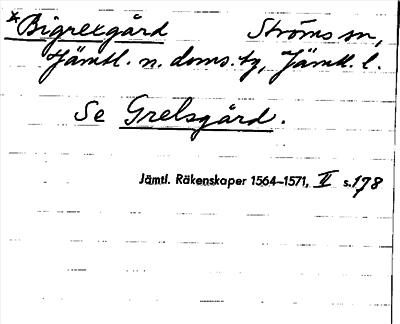 *Bigrelsgård Ströms sn,
Jämtl. n. doms. tg, Jämtl. l.
Se Grelsgård.
Jämtl. Räkenskaper 1564–1571, II s.178